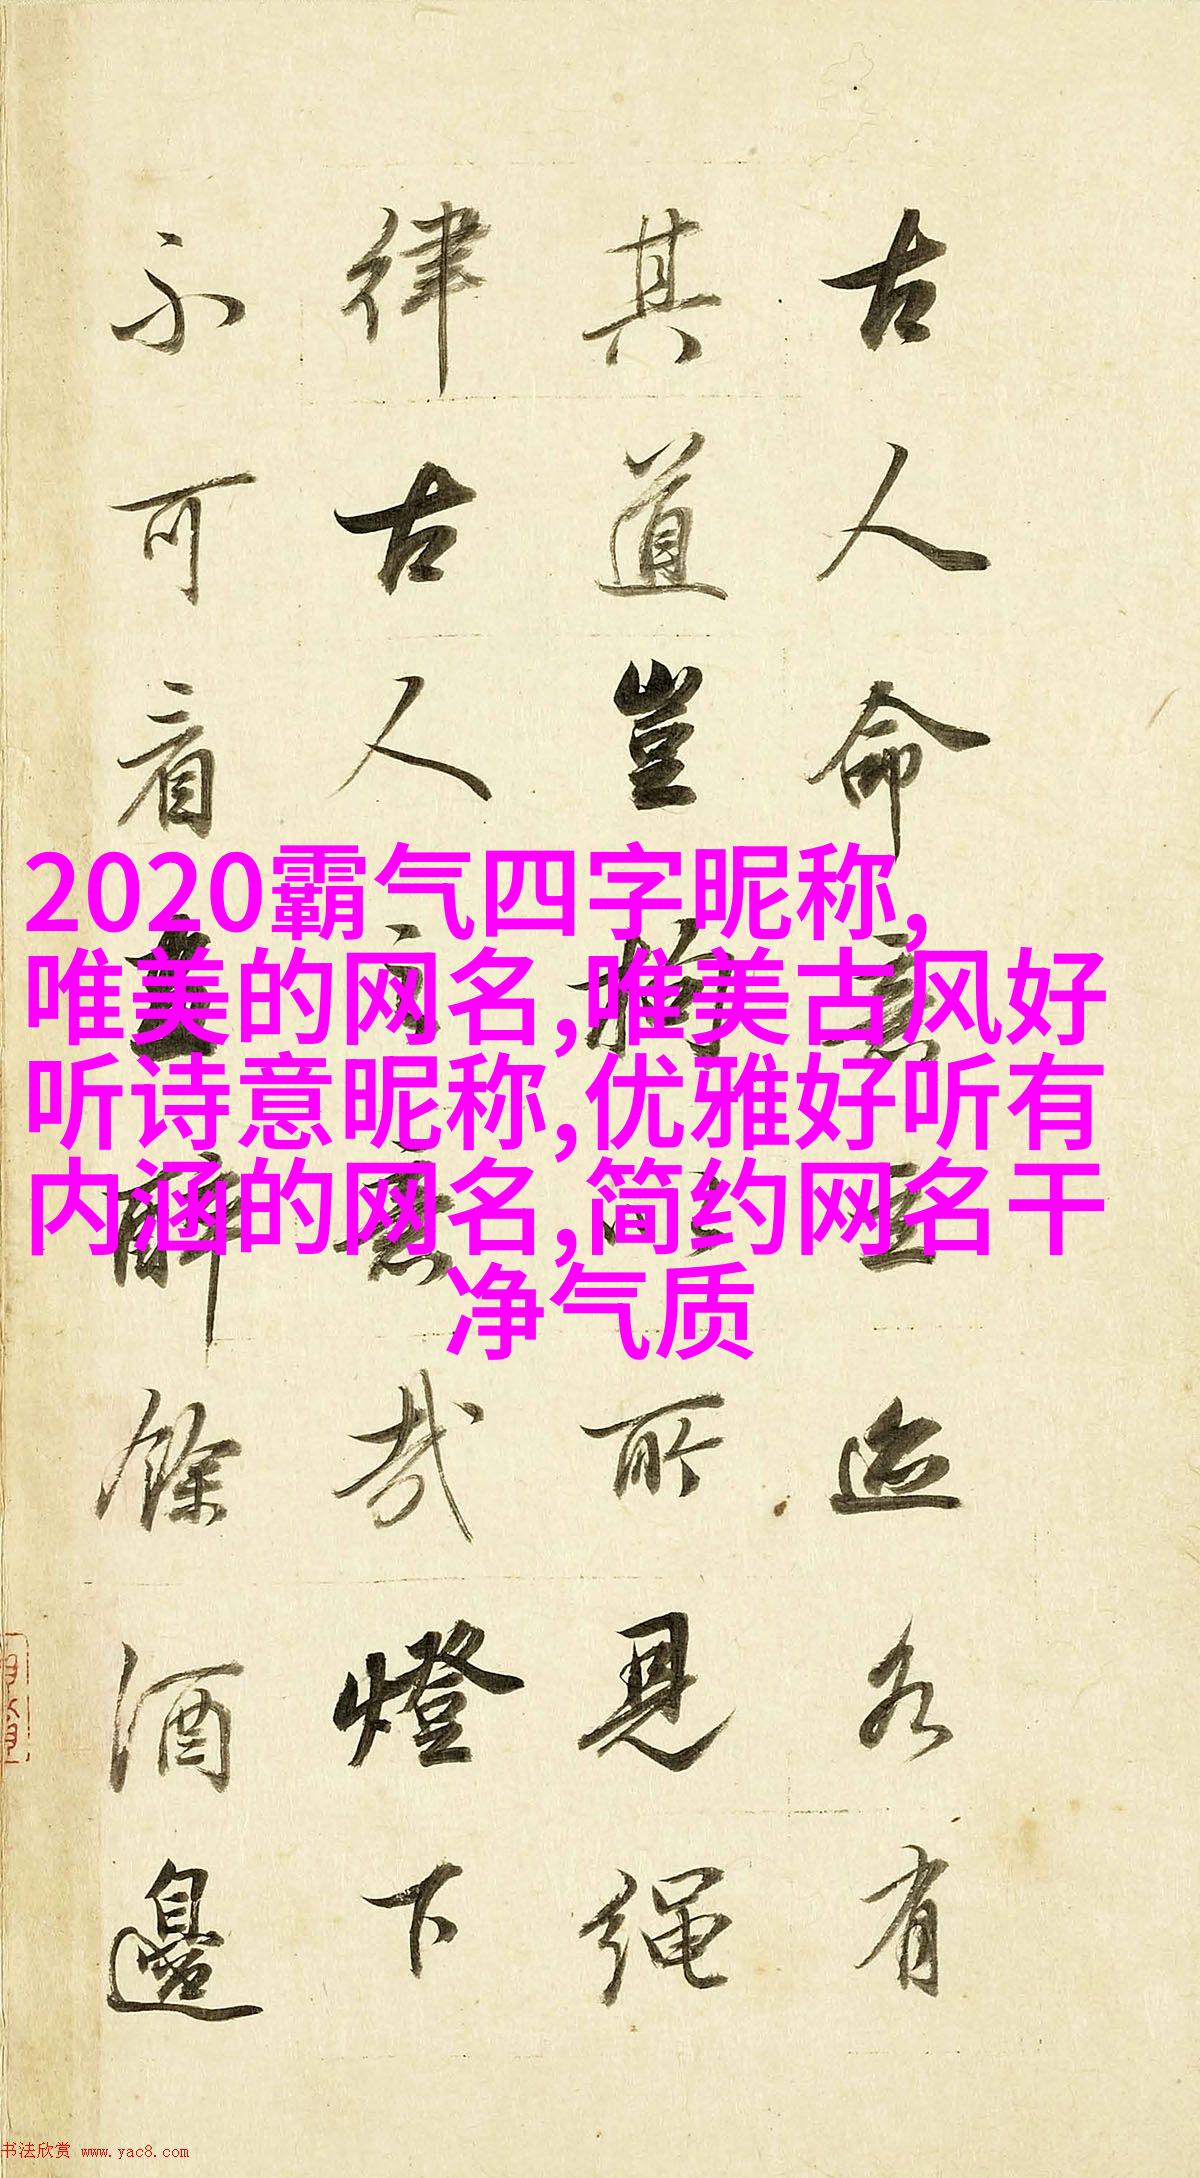 古人命意立迹各有
其道豈拘一所見繩
律古人之意哉燈下
不可看畫醉餘酒邊
2020霸气四字昵称,
唯美的网名,唯美古风好
听诗意昵称,优雅好听有
内涵的网名,简约网名干
净气质
书法欣赏 www.yac8.com